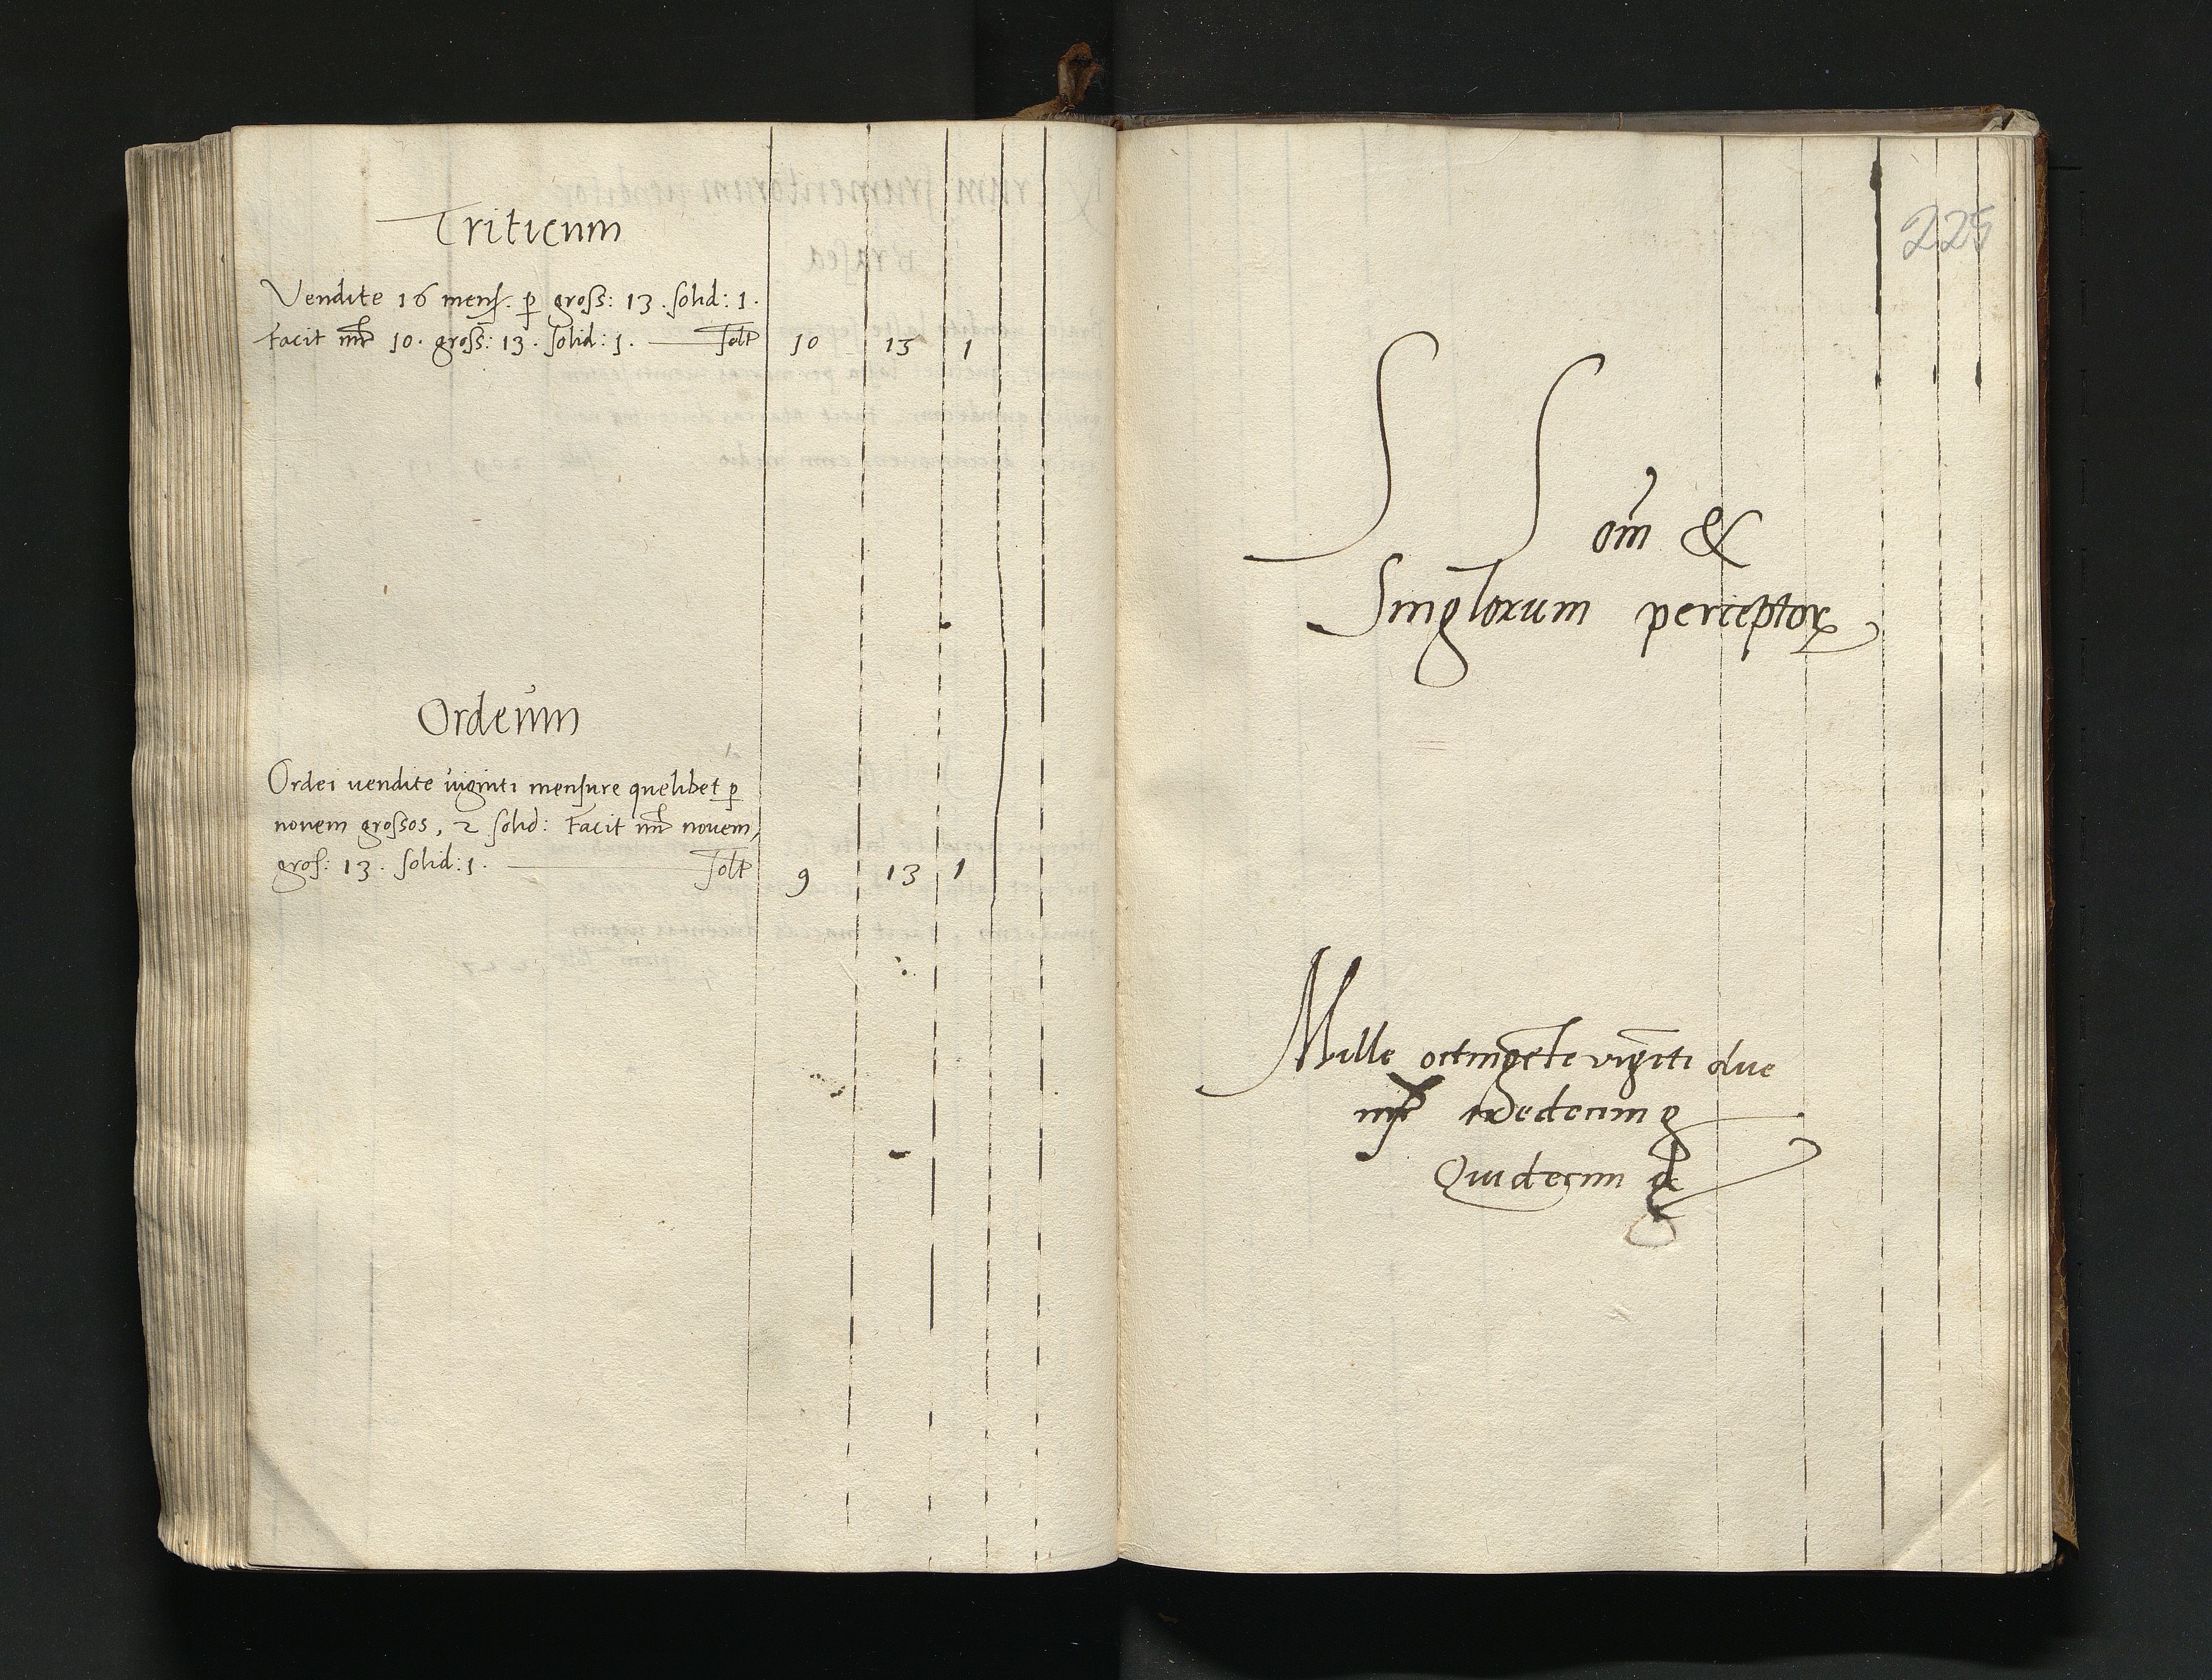 Triticum
Vendite 16 mens. p gross: 13. solid: 1.
Facit mr 10. gross: 13. solid: 1. solt 10 13 1
Ordeum
Ordei vendite viginti mensure quelibet p
novem grossos, 2 solid: Facit mr novem,
gros: 13. solid: 1. solt 9 13 1
225
S S om &
Singlorum perceptor
Mille octingete vigiti due
mr tredecim g
Quidecim d